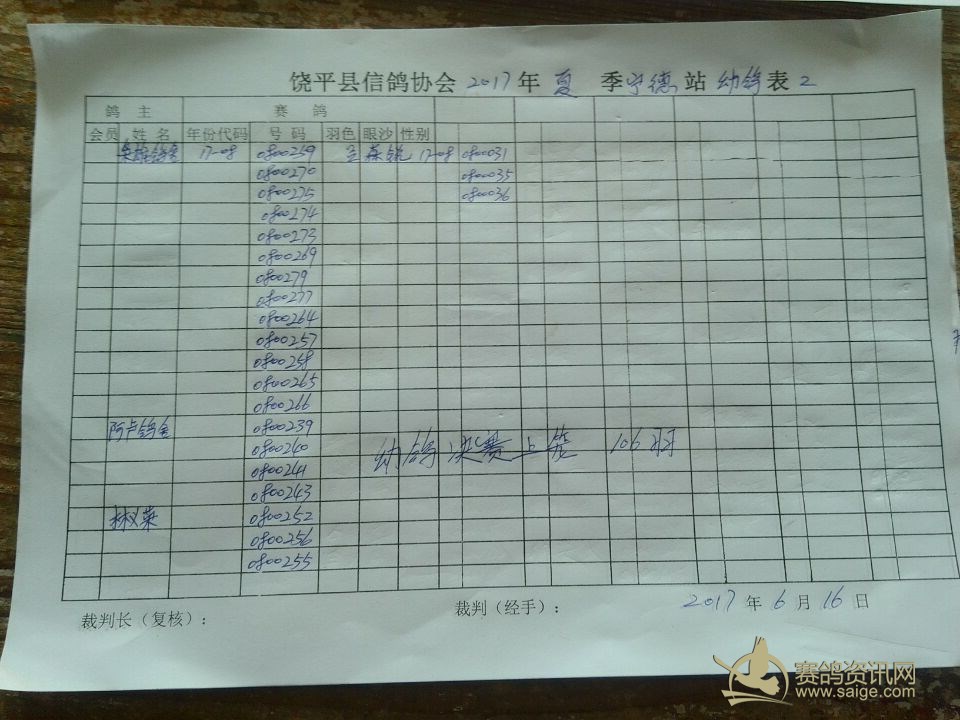 饶平县信鸽协会 2017 年 夏 季 宁德 站 幼鸽 表 2
鸽 主 赛 鸽
会员 姓 名 年份代码 号 码 羽色 眼沙 性别
英雄鸽舍 17-08 0800259 17-08 0800031
0800270 0800035
0800275 0800036
0800274
0800273
0800269
0800279
0800277
0800264
0800257
0800258
0800265
0800266
阿卢鸽舍 0800239
0800240 幼鸽决赛上笼 106羽
0800241
0800243
林义荣 0800252
0800256
0800255
裁判长（复核）： 裁判（经手）： 2017 年 6 月 16 日
赛鸽资讯网
www.saige.com